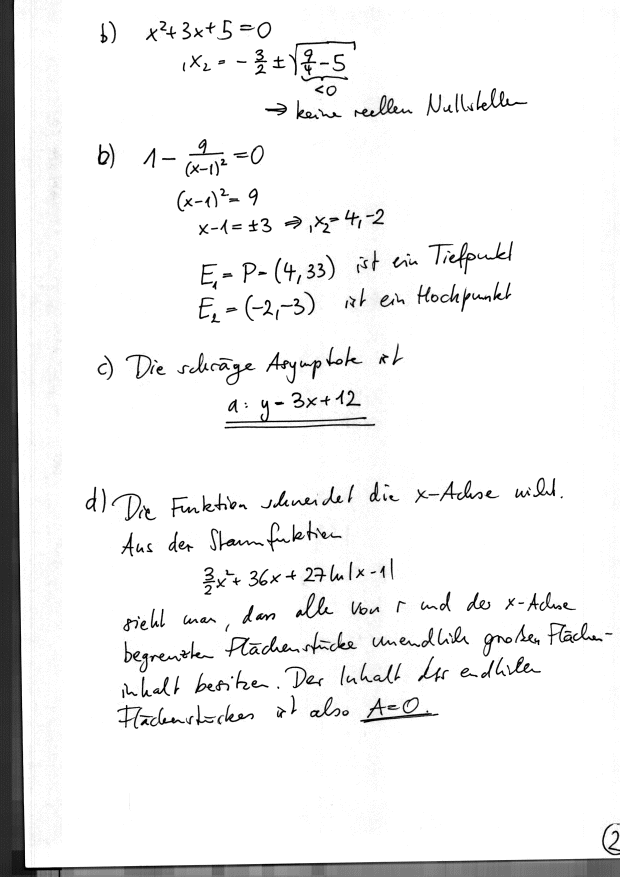 b) x²+3x+5=0
₁x₂ = -3/2 ± √(9/4 - 5)
<0
→ keine reellen Nullstellen
b) 1 - 9/(x-1)² = 0
(x-1)² = 9
x-1 = ±3 ⇒ ₁x₂ = 4, -2
E₁ = P = (4, 33) ist ein Tiefpunkt
E₂ = (-2, -3) ist ein Hochpunkt
c) Die schräge Asymptote ist
a: y = 3x+12
d) Die Funktion schneidet die x-Achse nicht.
Aus der Stammfuktion
3/2x² + 36x + 27 ln|x-1|
sieht man, dass alle von r und der x-Achse
begrenzten Flächenstücke unendlich großen Flächen-
inhalt besitzen. Der Inhalt des endlichen
Flächenstückes ist also A=0.
2